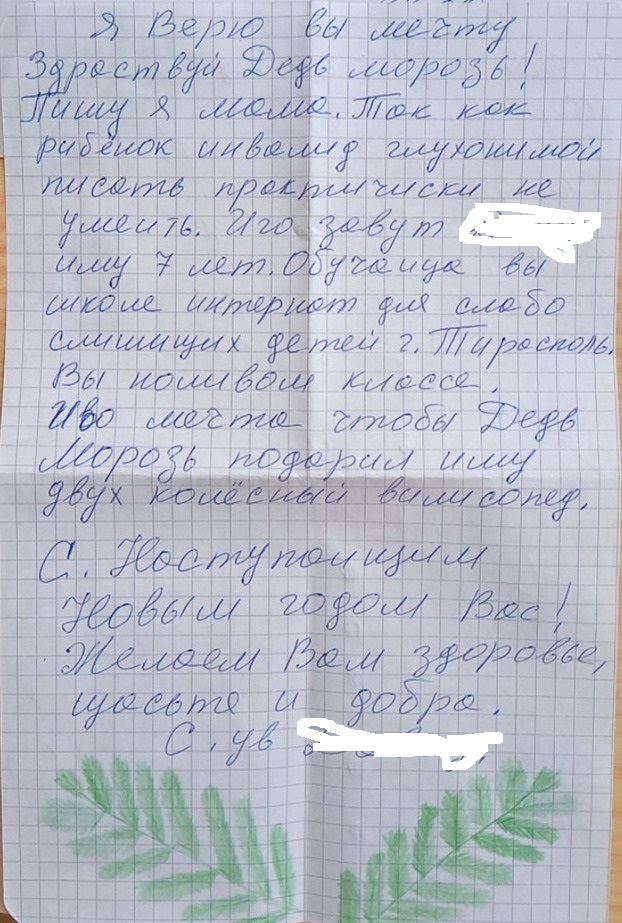 Я Верю вы мечту
Здраствуй Дедь морозь!
Пишу я мама. Так как
рибёнок инвалид глухонимой
писать практичиски не
умеить. Иго завут
иму 7 лет. Обучаица вы
школе интернат для слабо
слишищих детей г. Тирасполь.
Вы ноливом классе.
Иво мечта чтобы Дедь
Морозь подарил иму
двух колёсный вилисопед.
С. Наступаищим
Новым годом Вас!
Желаем Вам здоровье,
щасьте и добра.
С. ув